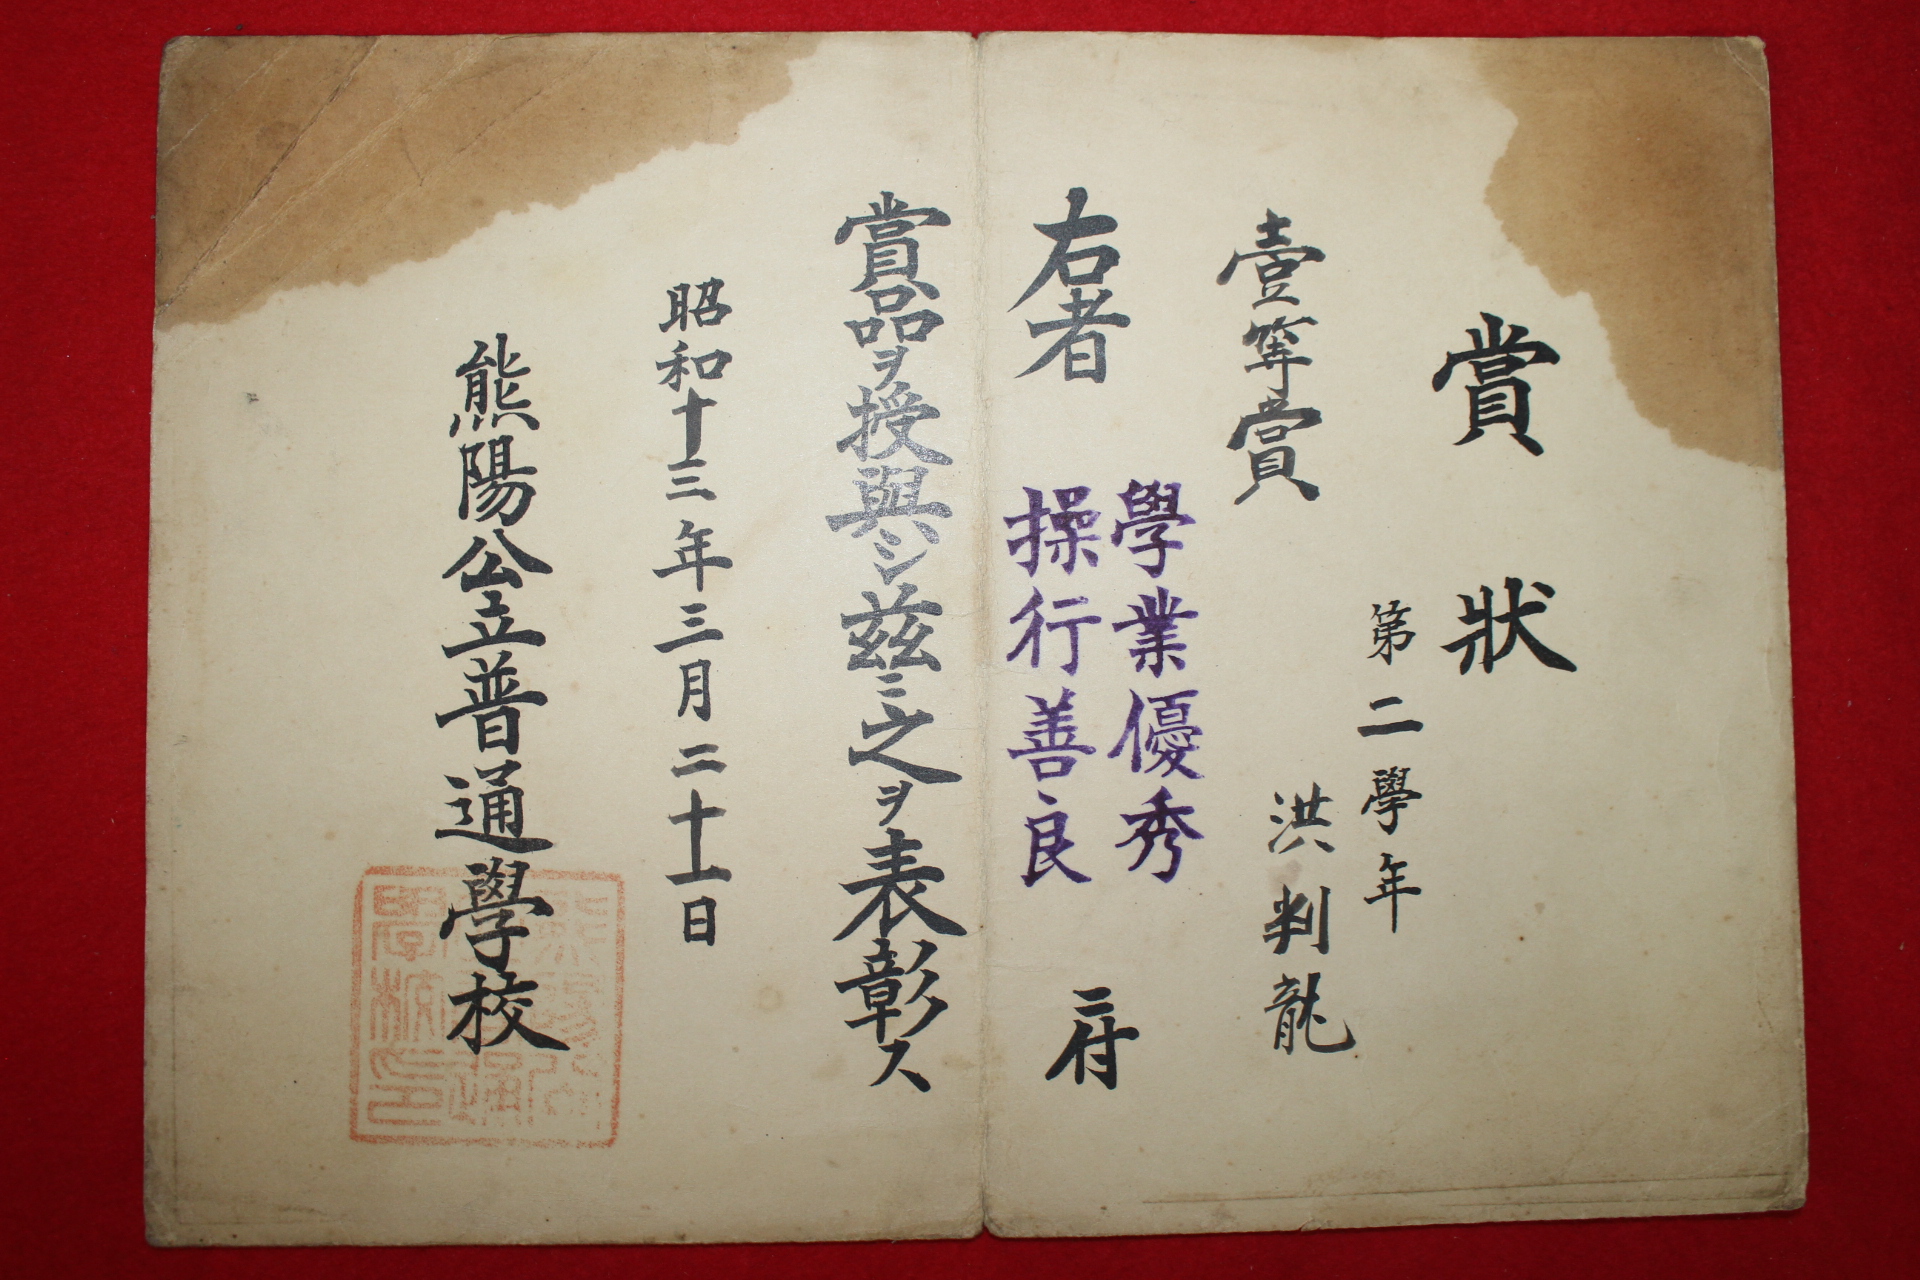 賞狀
第二學年
壹等賞 洪判龍
右者 學業優秀 操行善良 ニ付
賞品ヲ授與シ茲ニ之ヲ表彰ス
昭和十三年三月二十一日
熊陽公立普通學校
熊陽公
立普通
學校印